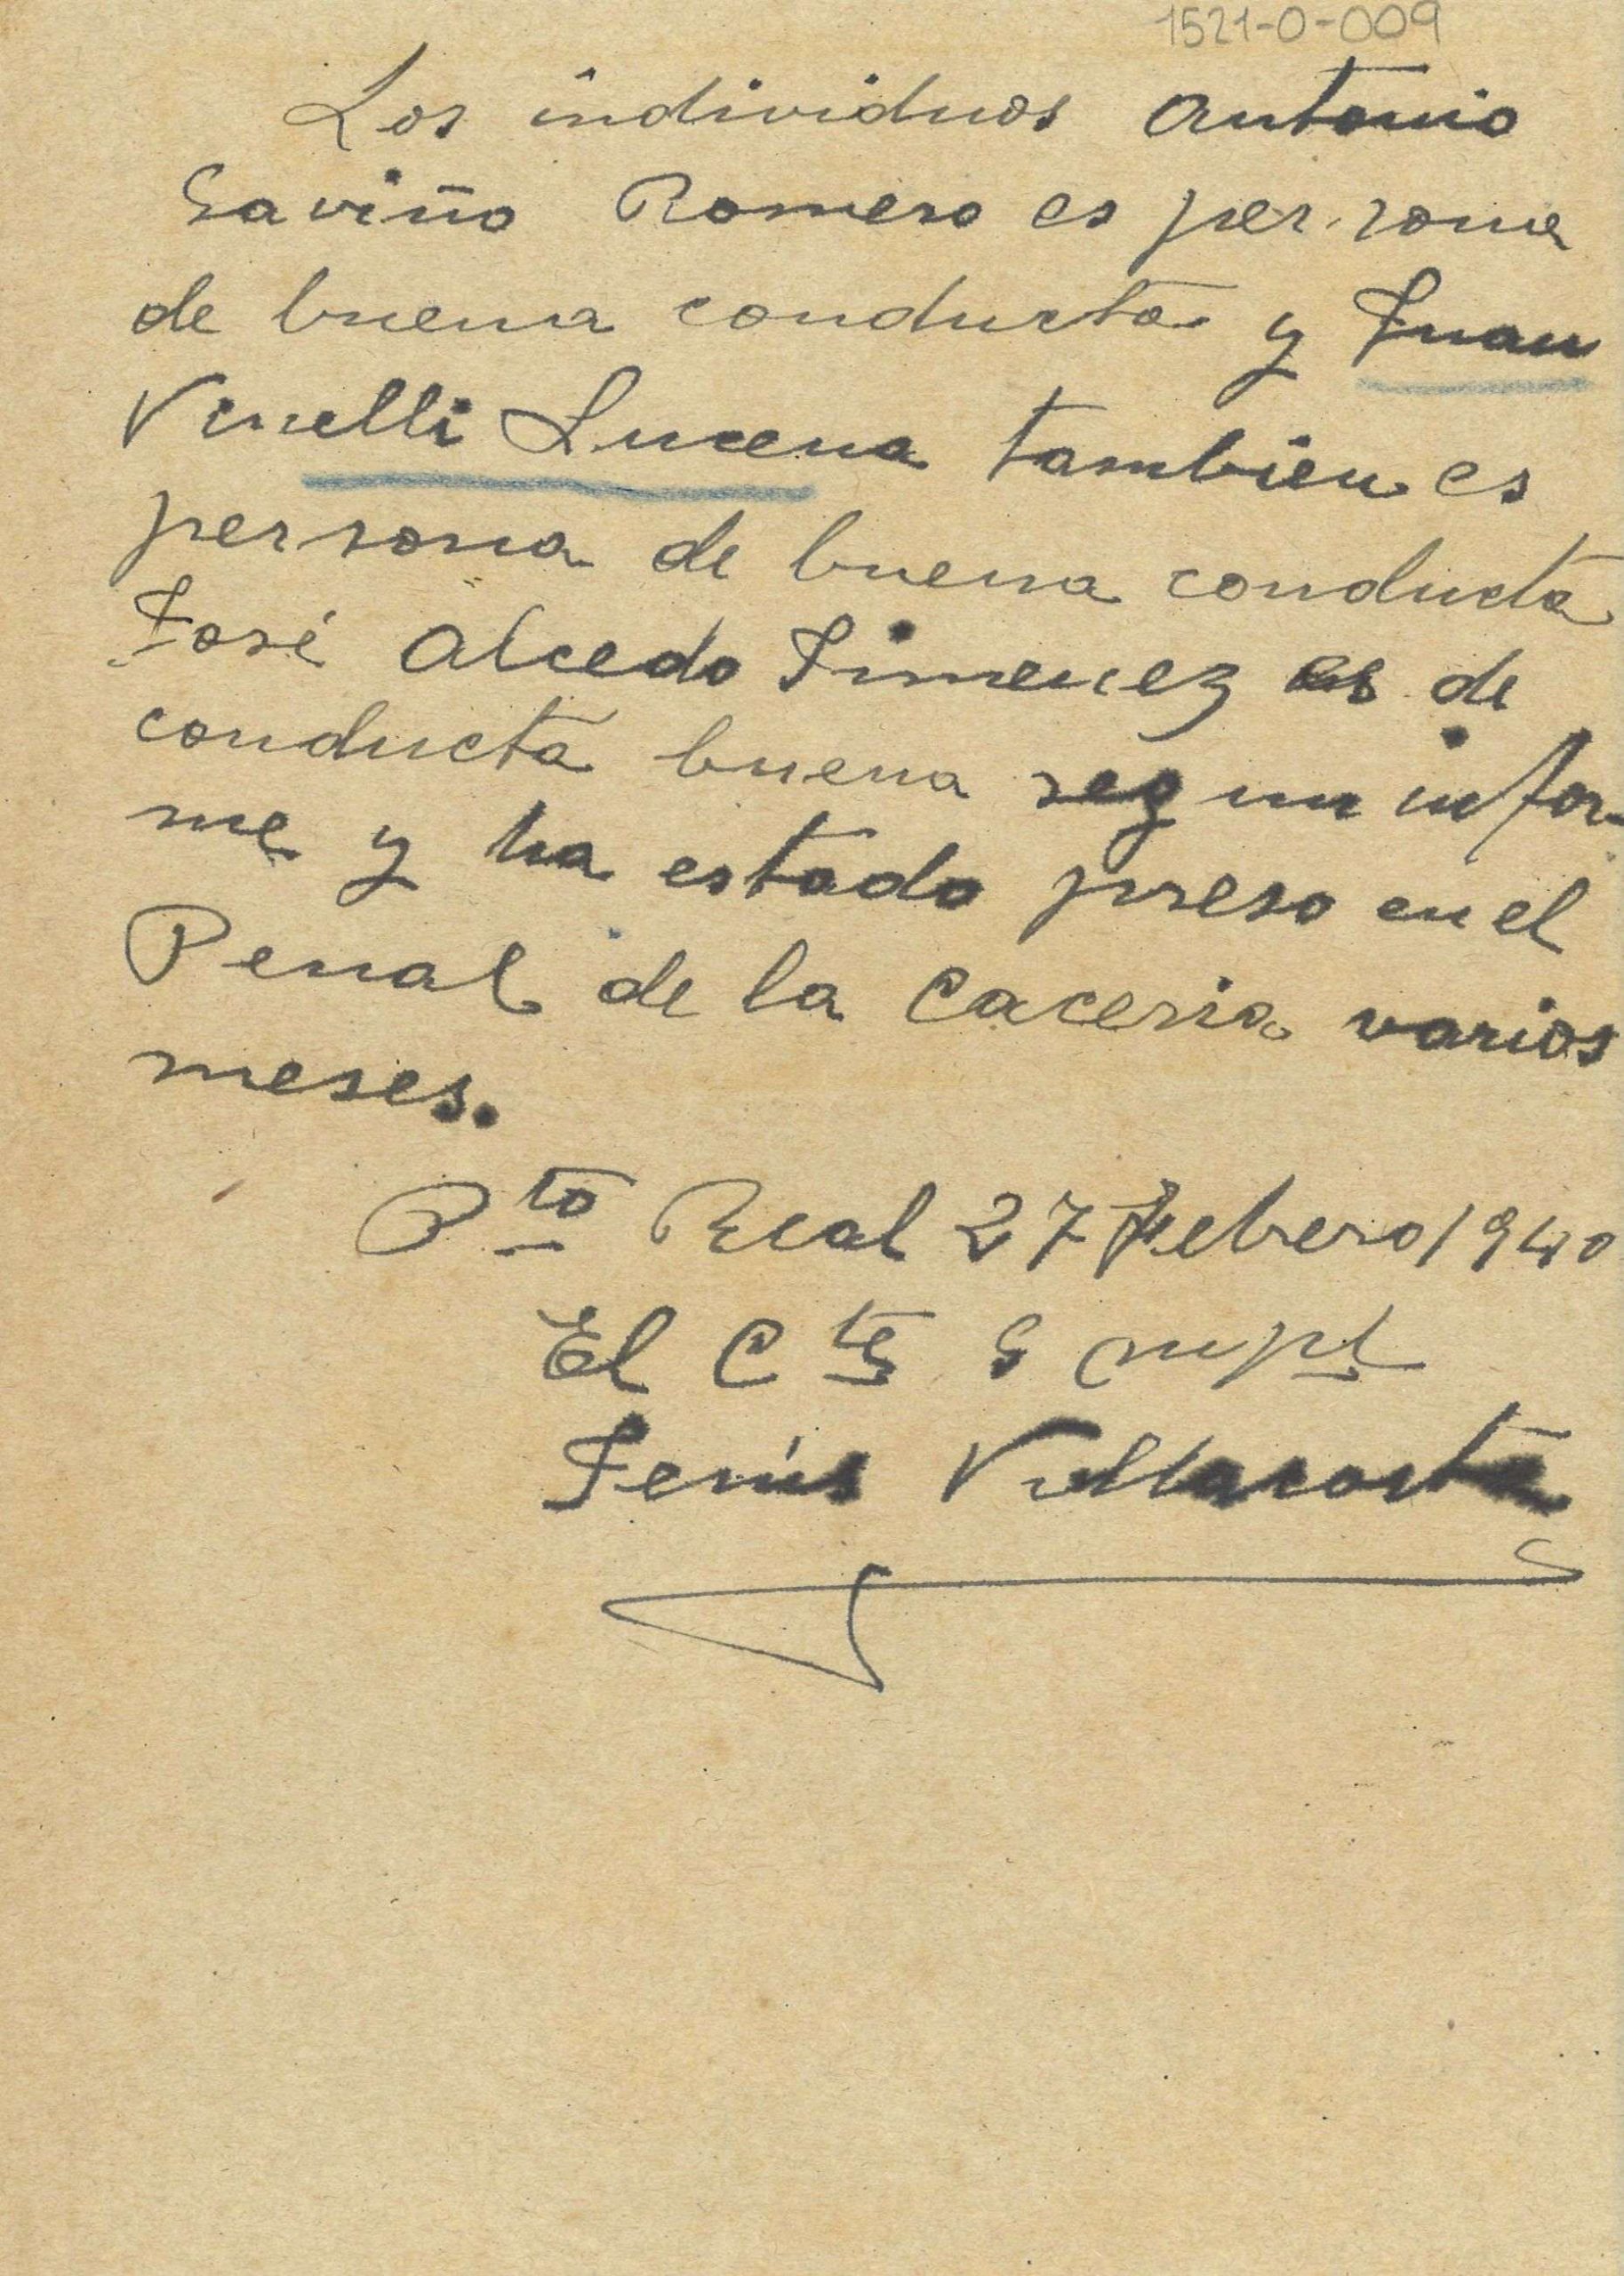 1521-0-009
Los individuos Antonio
Gaviño Romero es persona
de buena conducta y Juan
Vinelli Lucena tambien es
persona de buena conducta
José Alcedo Jimenez es de
conducta buena segun infor-
me y ha estado preso en el
Penal de la Caceria varios
meses.
Pto Real 27 Febrero 1940
El Cte
Jesús Villacorta